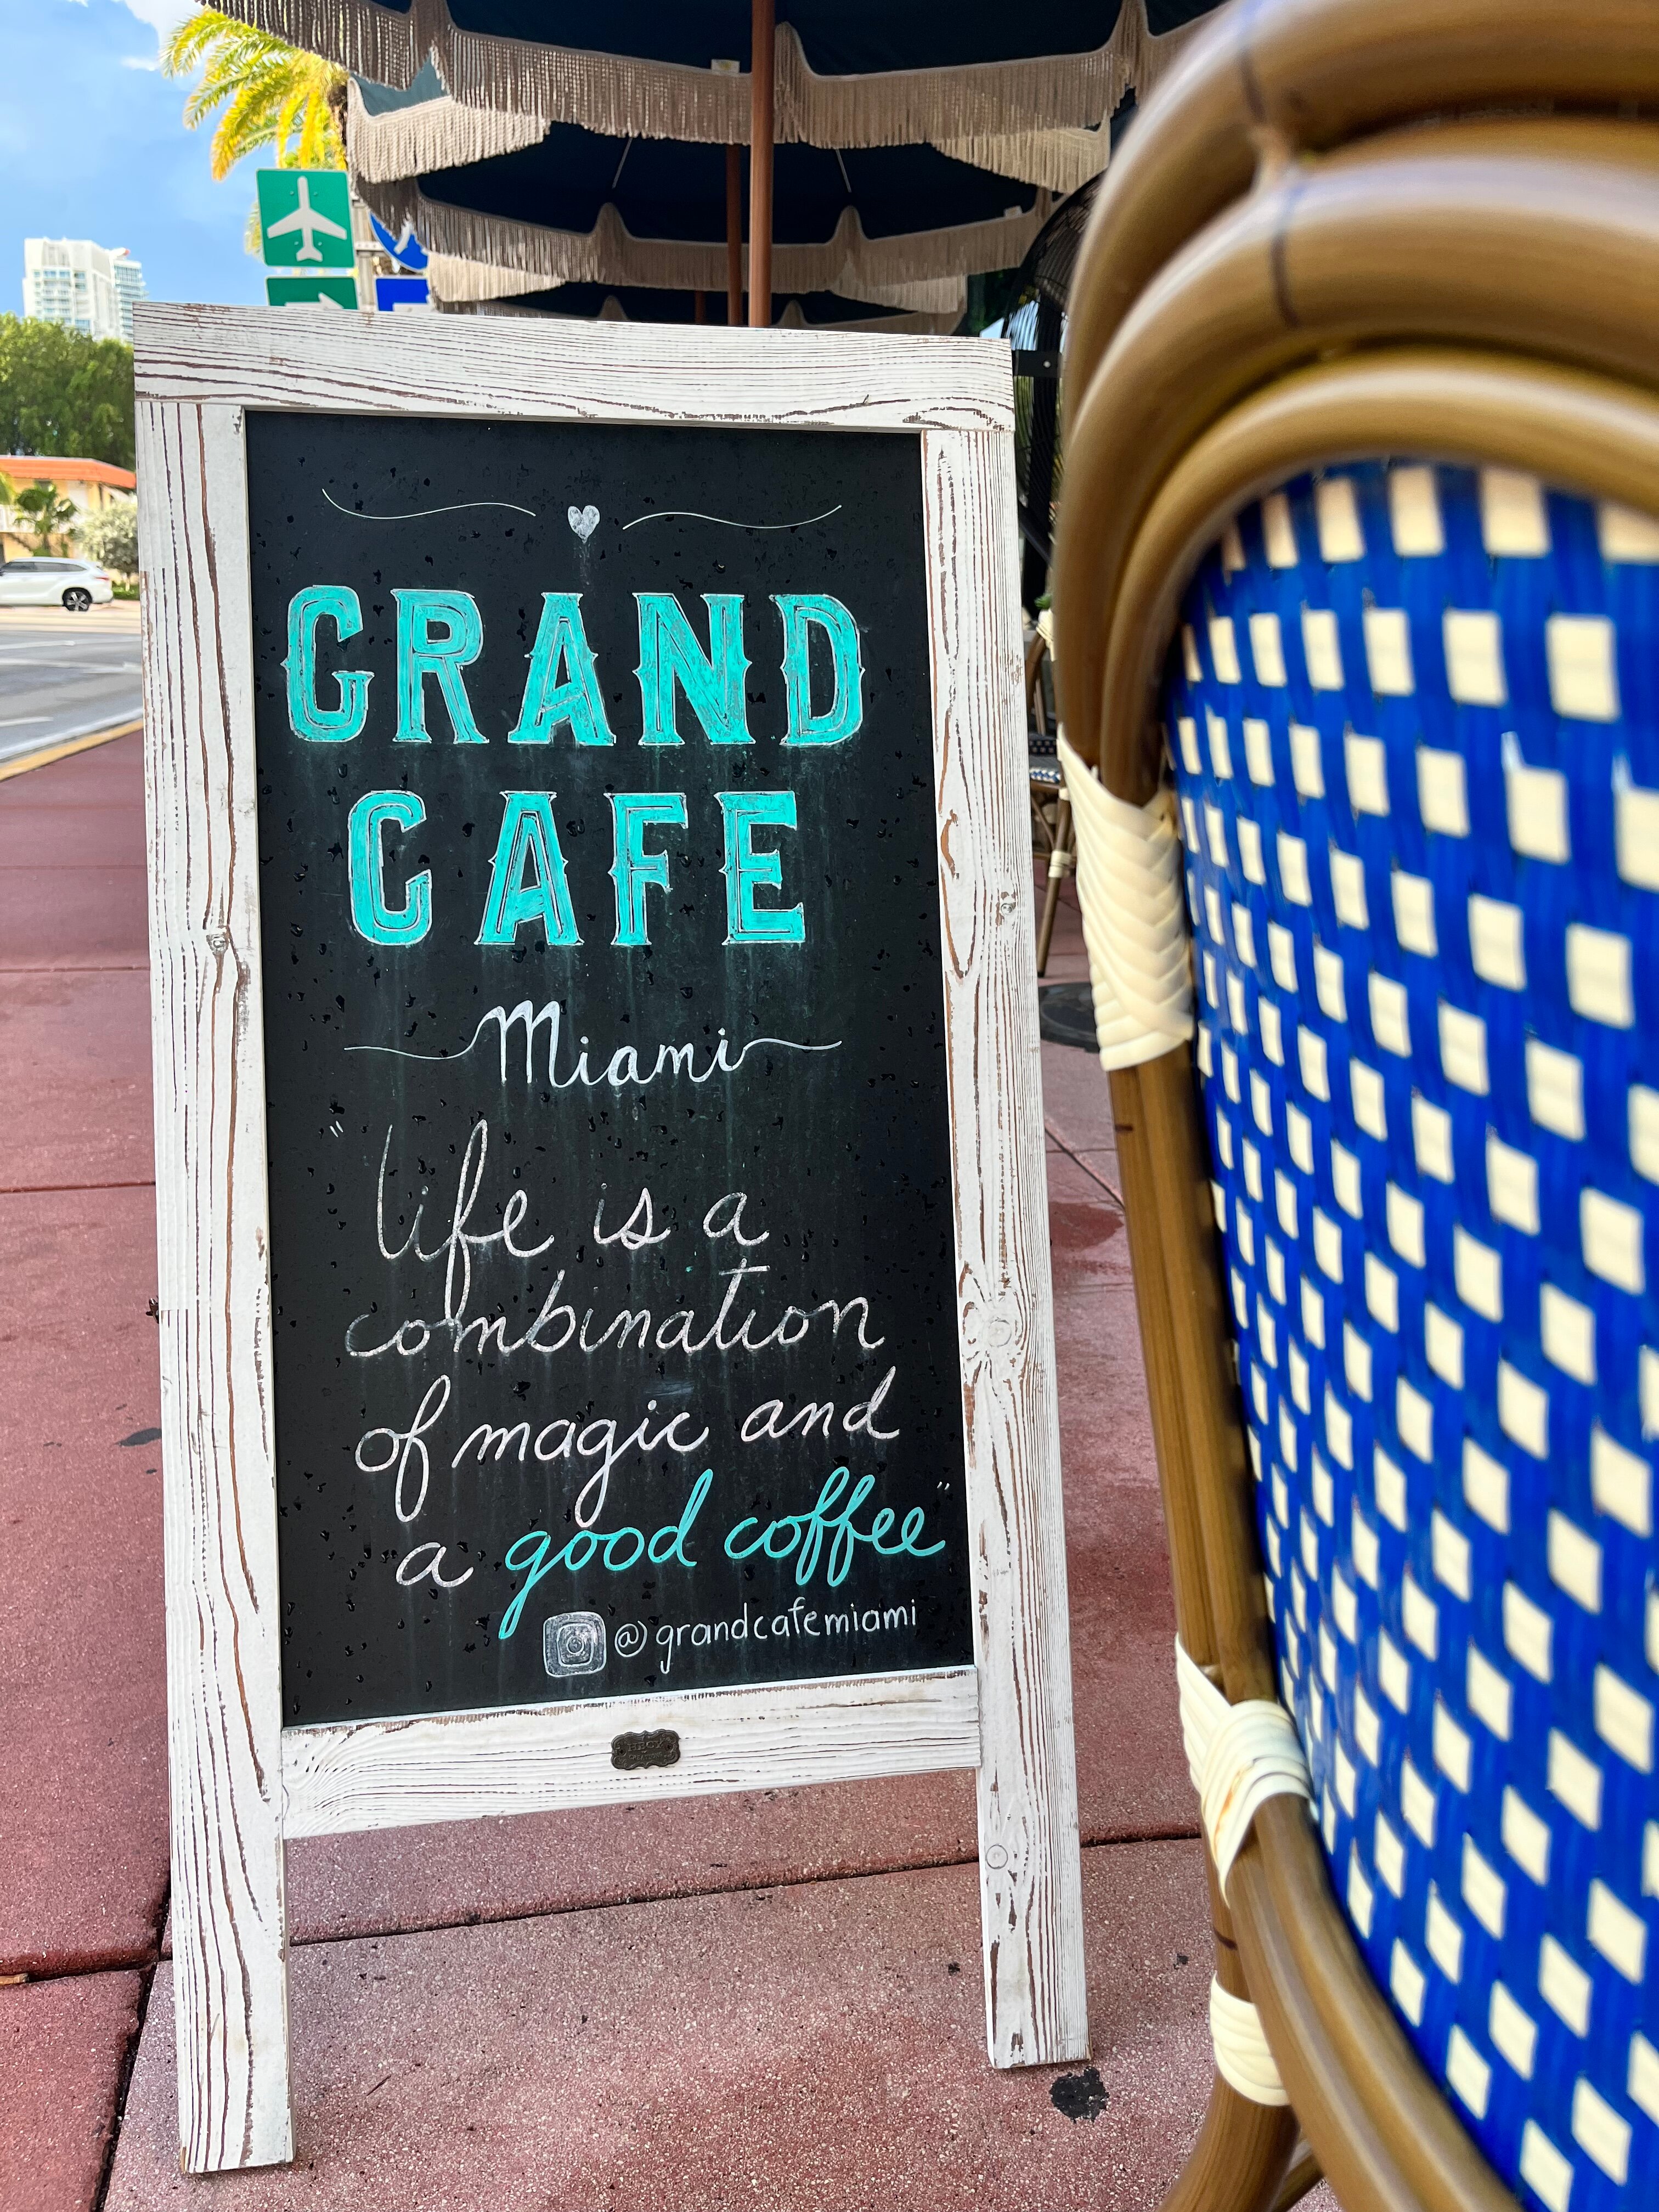 GRAND
CAFE
Miami
"life is a
combination
of magic and
a good coffee"
@grandcafemiami